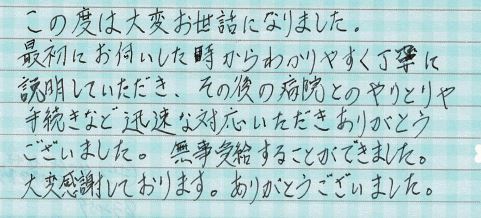 この度は大変お世話になりました。
最初にお伺いした時からわかりやすく丁寧に
説明していただき、その後の病院とのやりとりや
手続きなど迅速な対応いただきありがとう
ございました。無事受給することができました。
大変感謝しております。ありがとうございました。